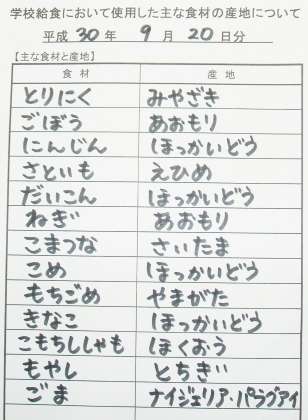 学校給食において使用した主な食材の産地について
平成 30 年 9 月 20 日分
【主な食材と産地】
食材 産地
とりにく みやざき
ごぼう あおもり
にんじん ほっかいどう
さといも えひめ
だいこん ほっかいどう
ねぎ あおもり
こまつな さいたま
こめ ほっかいどう
もちごめ やまがた
きなこ ほっかいどう
こもちししゃも ほくおう
もやし とちぎ
ごま ナイジェリア・パラグアイ